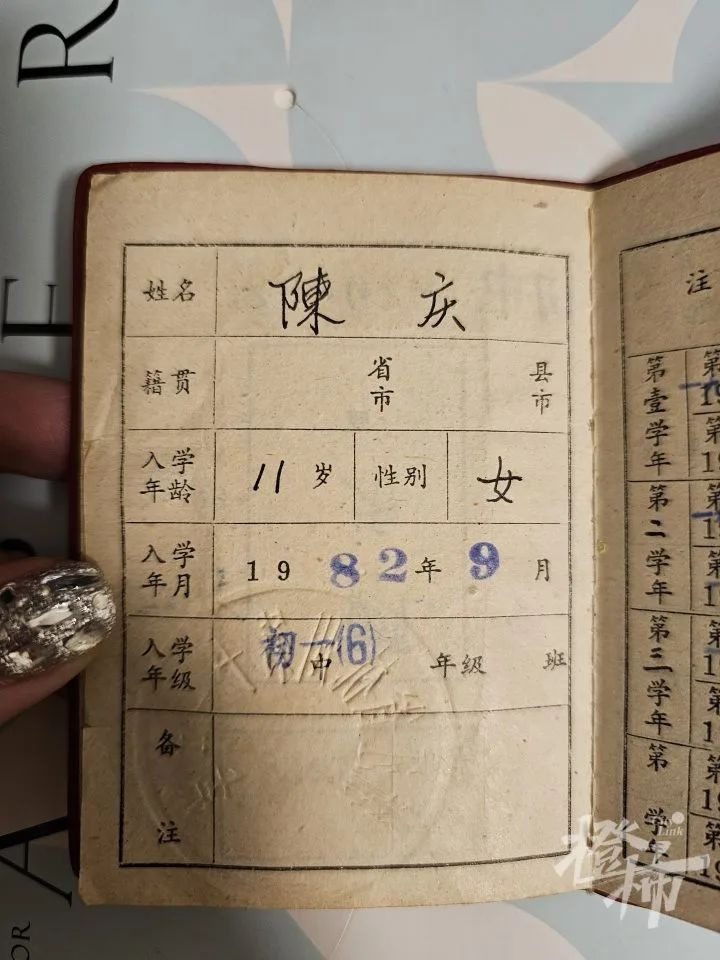 R
E
姓名 陳 庆
籍贯 省市 县市
入学年龄 11 岁 性别 女
入学年月 19 82 年 9 月
入学年级 初一(6) 中 年级 班
备注
注
第壹学年 第 19
第 19
第二学年 第 19
第 1
第三学年 第 1
第 1
第 学年 第 19
第 19
A
OR
橙柿
Link